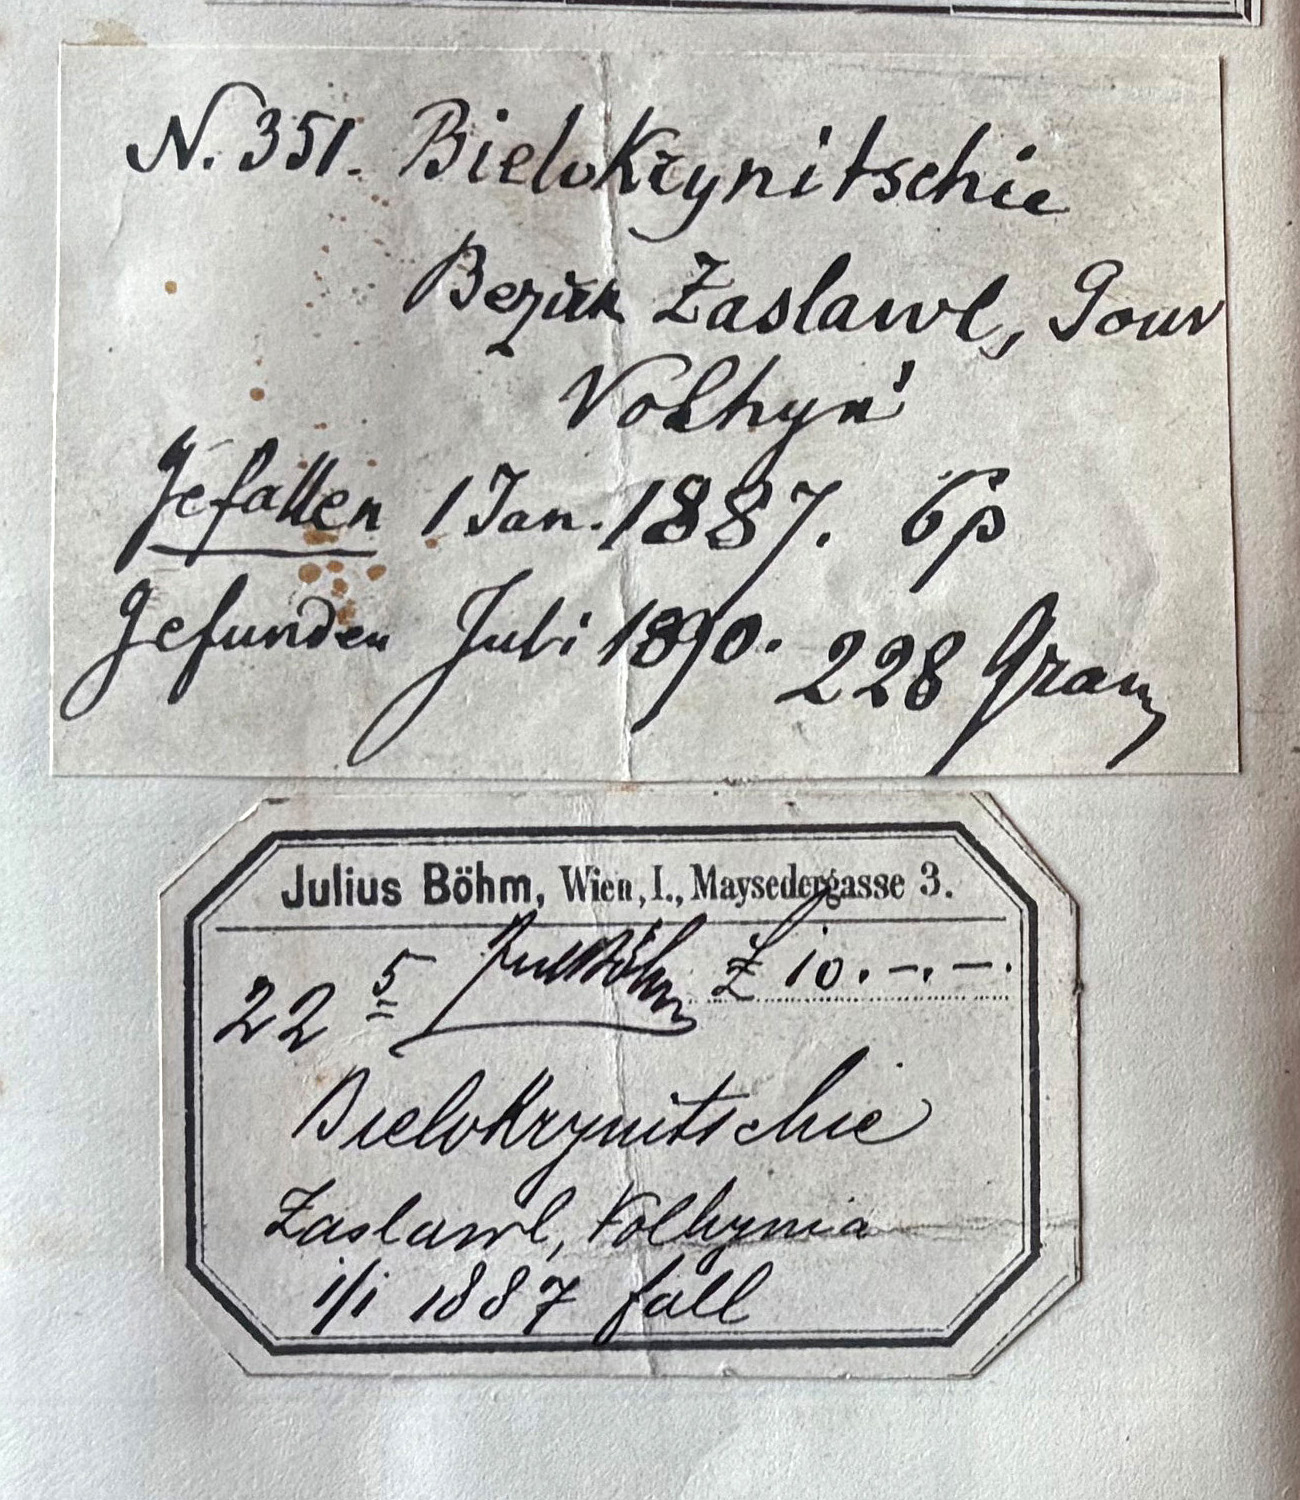 N. 351. Bielokrynitschie
Bezirk Zaslawl, Gouv
Volhyn'
Gefallen 1 Jan. 1887. 6p
Gefunden Juli 1890. 228 Gram
Julius Böhm, Wien, I., Maysedergasse 3.
22 5 Jul Böhm £ 10.-.-.
Bielokrynitschie
Zaslawl, Volhynia
1/1 1887 fall